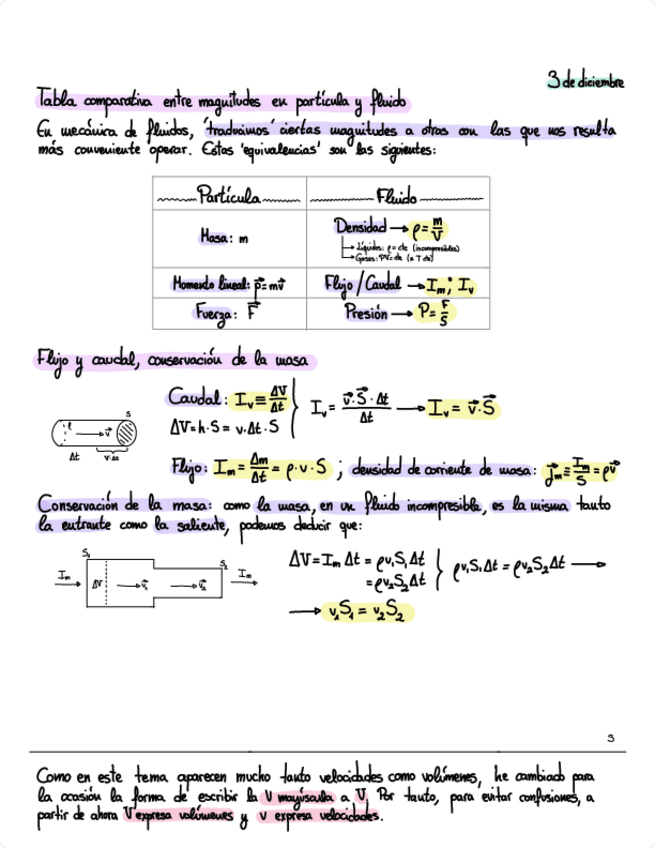 3 de diciembre
Tabla comparativa entre magnitudes en partícula y fluido
En mecánica de fluidos, 'traducimos' ciertas magnitudes a otras con las que nos resulta
más conveniente operar. Estas 'equivalencias' son las siguientes:
Partícula Fluido
Masa: m Densidad → ρ = m/V
Líquidos: ρ = cte (incompresibles)
Gases: PV = cte (a T cte)
Momento lineal: p⃗ = mv⃗ Flujo/Caudal → Iₘ; Iᵥ
Fuerza: F⃗ Presión → P = F/S
Flujo y caudal, conservación de la masa
Caudal: Iᵥ ≡ ΔV/Δt
ΔV = h·S = v·Δt·S } Iᵥ = v⃗·S⃗·Δt/Δt → Iᵥ = v⃗·S⃗
l v⃗ S
Δt v·Δt
Flujo: Iₘ = Δm/Δt = ρ·v·S ; densidad de corriente de masa: j⃗ₘ ≡ Iₘ/S = ρv⃗
Conservación de la masa: como la masa, en un fluido incompresible, es la misma tanto
la entrante como la saliente, podemos deducir que:
S₁ S₂
Iₘ ΔV v⃗₁ v⃗₂ Iₘ
ΔV = Iₘ Δt = ρv₁S₁Δt
= ρv₂S₂Δt } ρv₁S₁Δt = ρv₂S₂Δt →
→ v₁S₁ = v₂S₂
3
Como en este tema aparecen mucho tanto velocidades como volúmenes, he cambiado para
la ocasión la forma de escribir la V mayúscula a V. Por tanto, para evitar confusiones, a
partir de ahora V expresa volúmenes y v expresa velocidades.